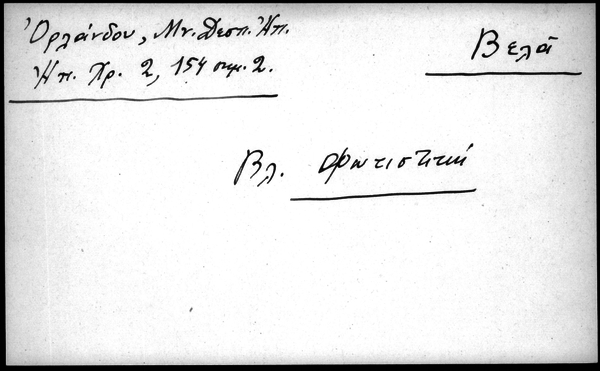 Ὀρλάνδου, Μν. Δεσπ. Ἠπ.
Ἠπ. Χρ. 2, 154 σημ. 2.
Βελᾶ
Βλ. Φωτιστική